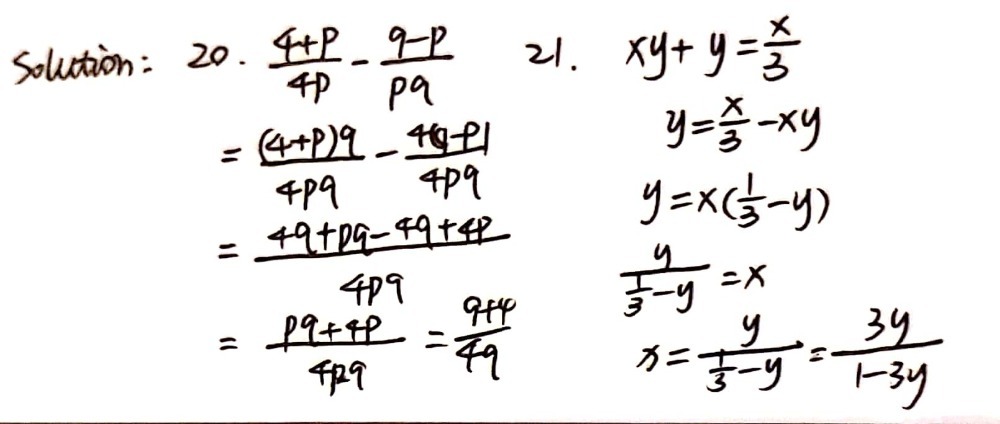 Solution: 20. (4+p)/(4p) - (q-p)/(pq)
= ((4+p)q)/(4pq) - (4(q-p))/(4pq)
= (4q+pq-4q+4p)/(4pq)
= (pq+4p)/(4pq) = (q+4)/(4q)
21. xy+y=x/3
y=x/3-xy
y=x(1/3-y)
y/(1/3-y)=x
x=y/(1/3-y)=3y/(1-3y)